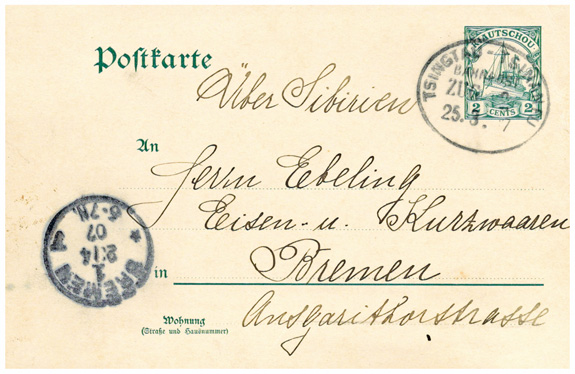 Postkarte
KIAUTSCHOU
2 CENTS 2
TSINGTAU - TSINANFU
BAHNPOST
ZUG 2
25.3. 7
Über Sibirien
An
Herrn Ebeling
Eisen- u. Kurzwaaren
in Bremen
Ansgarithorstrasse
Wohnung
(Straße und Hausnummer)
BREMEN
1
07
5-7N.